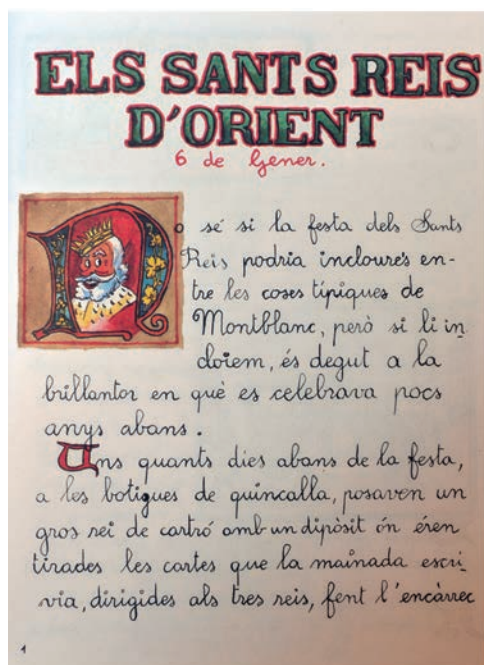 ELS SANTS REIS
D'ORIENT
6 de Gener.
No sé si la festa dels Sants
Reis podria incloure's en-
tre les coses típiques de
Montblanc, però si li in
cloiem, és degut a la
brillantor en què es celebrava pocs
anys abans.
Uns quants dies abans de la festa,
a les botigues de quincalla, posaven un
gros rei de cartró amb un dipòsit ón éren
tirades les cartes que la mainada escri-
via, dirigides als tres reis, fent l'encàrrec
1